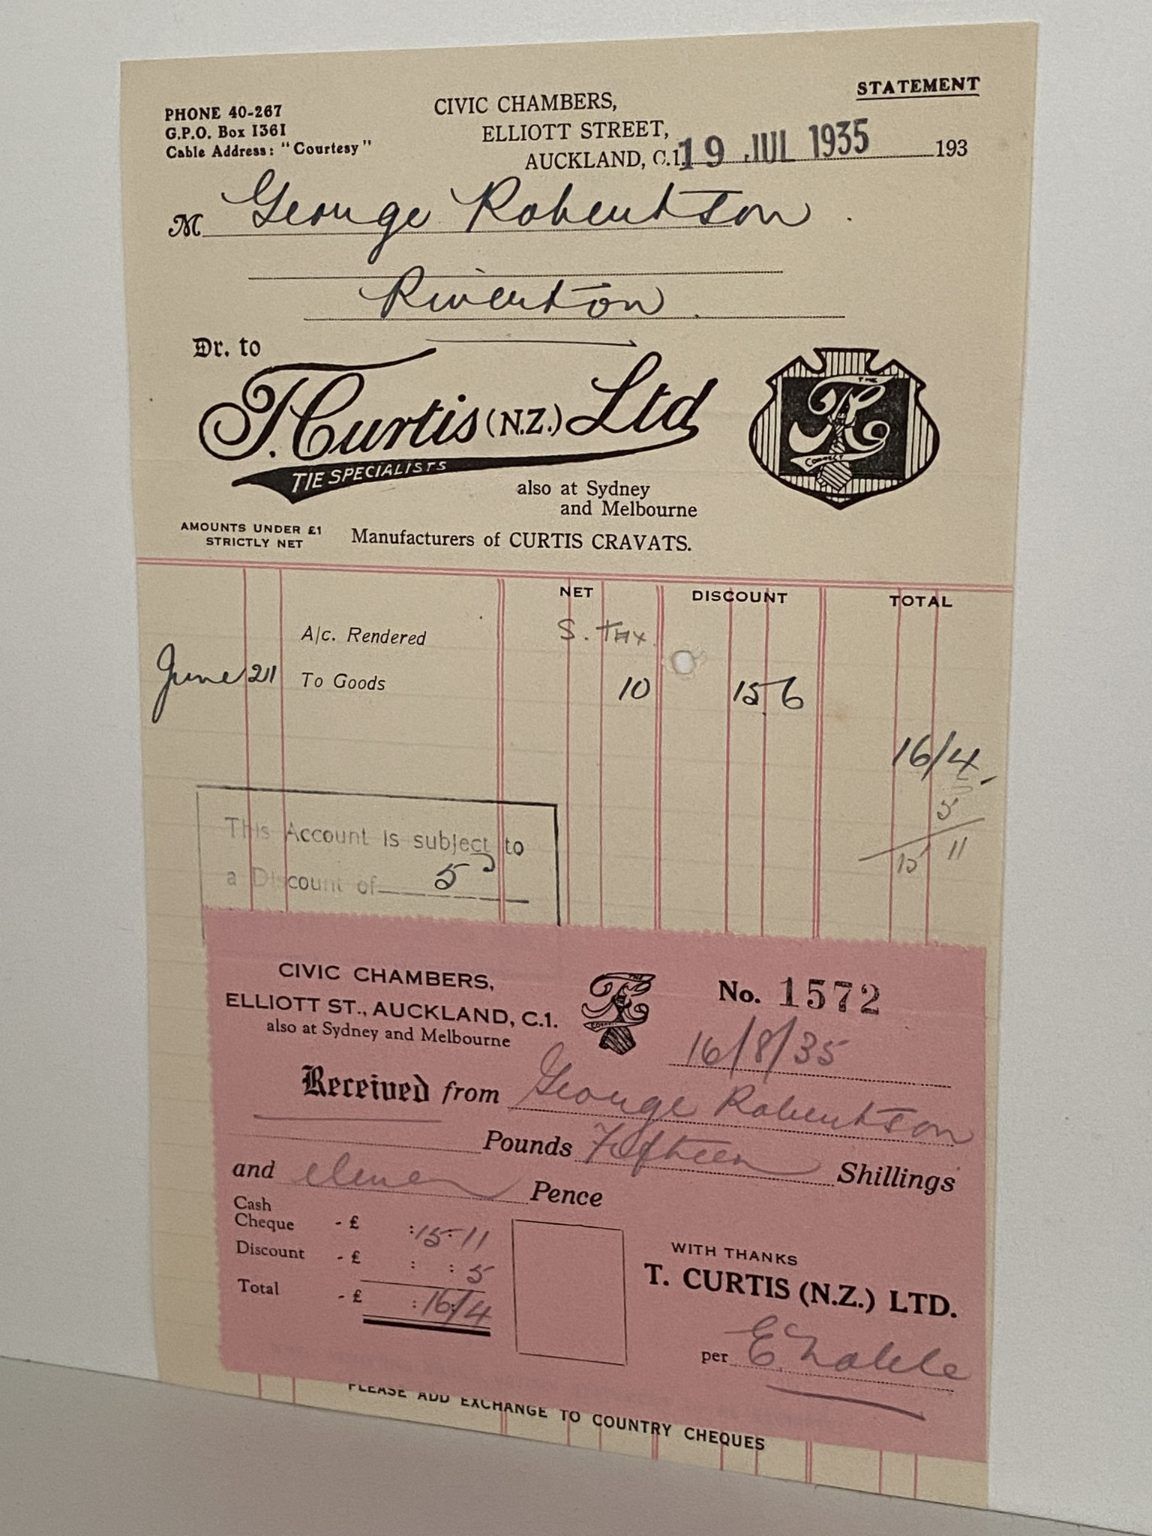 STATEMENT
PHONE 40-267
G.P.O. Box 1361
Cable Address: "Courtesy"
CIVIC CHAMBERS,
ELLIOTT STREET,
AUCKLAND, C.1. 19 JUL 1935 193
M George Robertson.
Riverton.
Dr. to
T. Curtis (N.Z.) Ltd
TIE SPECIALISTS
THE
TC
CORRECT
also at Sydney
and Melbourne
AMOUNTS UNDER £1
STRICTLY NET
Manufacturers of CURTIS CRAVATS.
NET DISCOUNT TOTAL
A/c. Rendered S. Tax
June 21 To Goods 10 15 6
16/4
5
15 11
This Account is subject to
a Discount of 5
CIVIC CHAMBERS,
ELLIOTT ST., AUCKLAND, C.1.
also at Sydney and Melbourne
No. 1572
16/8/35
Received from George Robertson
Pounds Fifteen Shillings
and eleven Pence
Cash
Cheque - £ : 15 : 11
Discount - £ : : 5
Total - £ : 16/4
WITH THANKS
T. CURTIS (N.Z.) LTD.
per
PLEASE ADD EXCHANGE TO COUNTRY CHEQUES